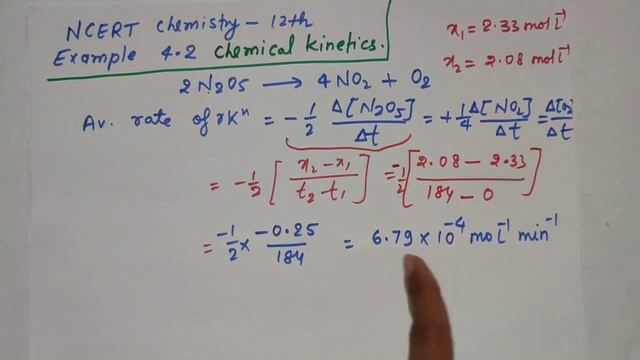 NCERT chemistry – 12th
Example 4.2 chemical kinetics.
x₁ = 2.33 mol l⁻¹
x₂ = 2.08 mol l⁻¹
2N₂O₅ → 4NO₂ + O₂
Av. rate of rxⁿ = -1/2 Δ[N₂O₅]/Δt = +1/4 Δ[NO₂]/Δt = Δ[O₂]/Δt
= -1/2 [x₂ - x₁ / t₂ - t₁] = -1/2 [2.08 - 2.33 / 184 - 0]
= -1/2 × -0.25/184 = 6.79 × 10⁻⁴ mol l⁻¹ min⁻¹